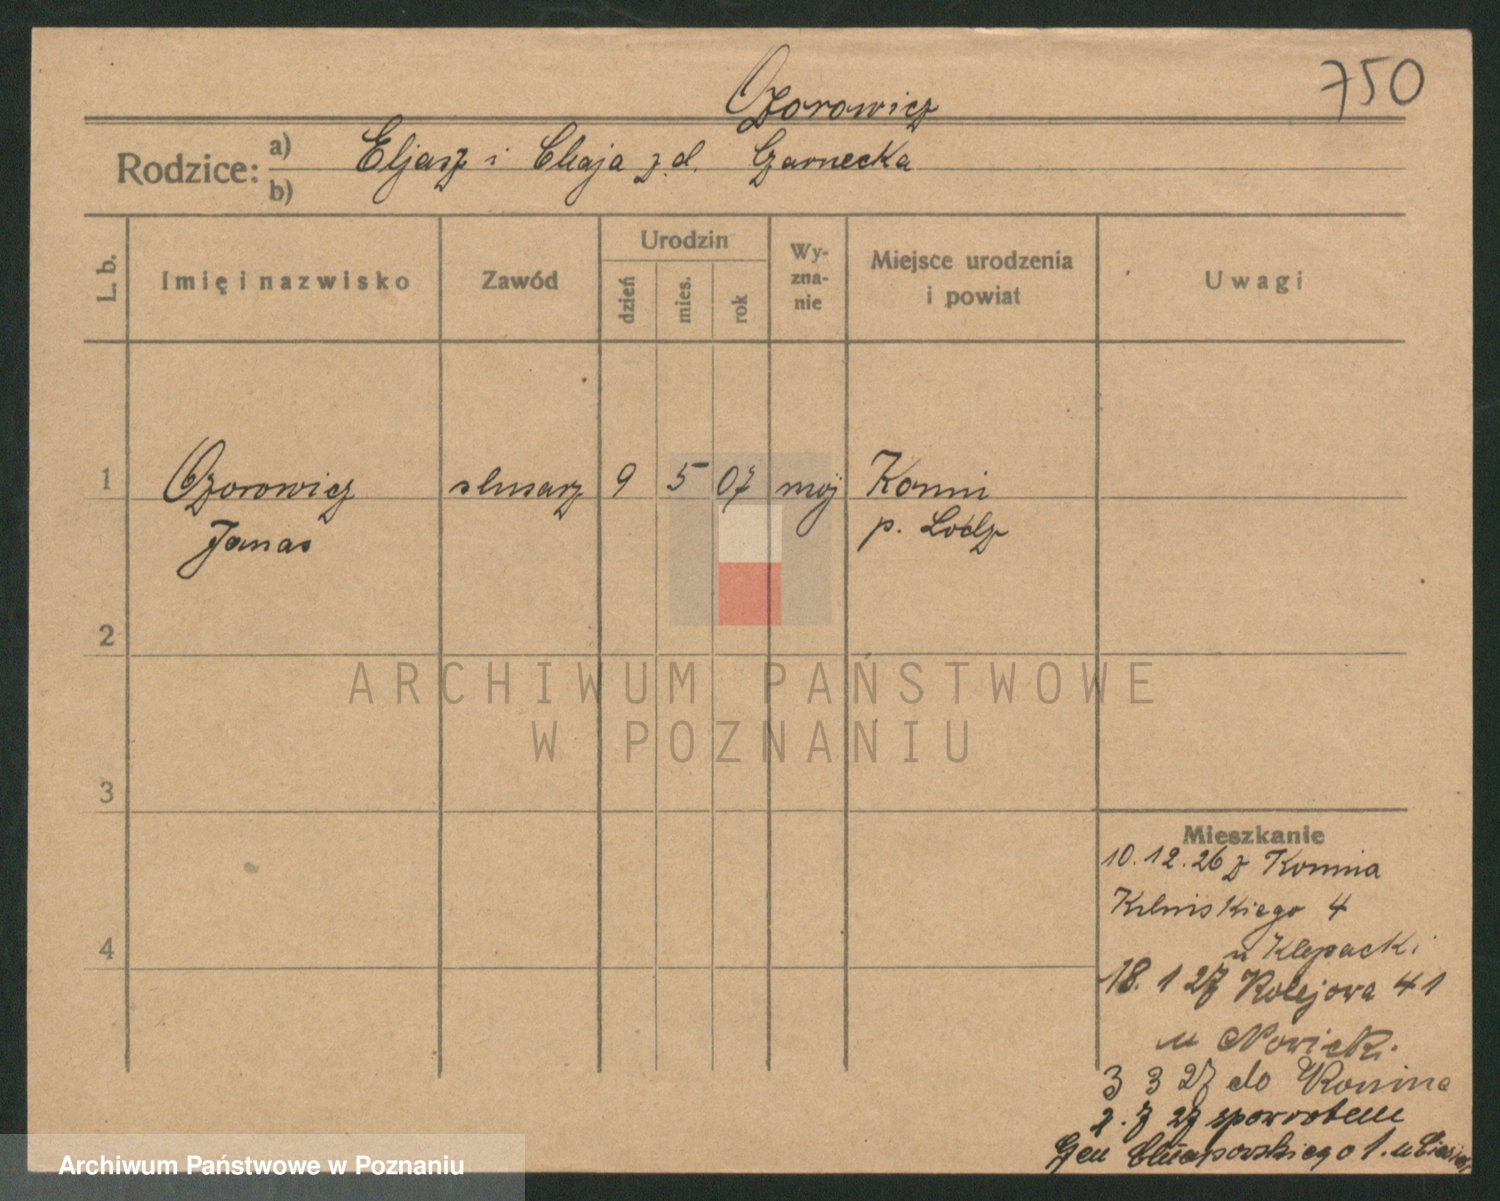 750
Ozorowicz
Rodzice: a) Eljasz i Chaja z d. Czarnecka
b)
L. b.
Imię i nazwisko
Zawód
Urodzin
dzień
mies.
rok
Wy-
zna-
nie
Miejsce urodzenia
i powiat
Uwagi
1 Ozorowicz ślusarz 9 5 07 moj Konin
Janas p. Łódz
2
3
4
Mieszkanie
10.12.26 z Konina
Kilinskiego 4
u Klepacki
18. 1 27 Kolejowa 41
u Nowicki
3 3 27 do Konina
2. 7 27 spowrotem
Gen Chłapowskiego 1. u
ARCHIWUM PAŃSTWOWE
W POZNANIU
Archiwum Państwowe w Poznaniu